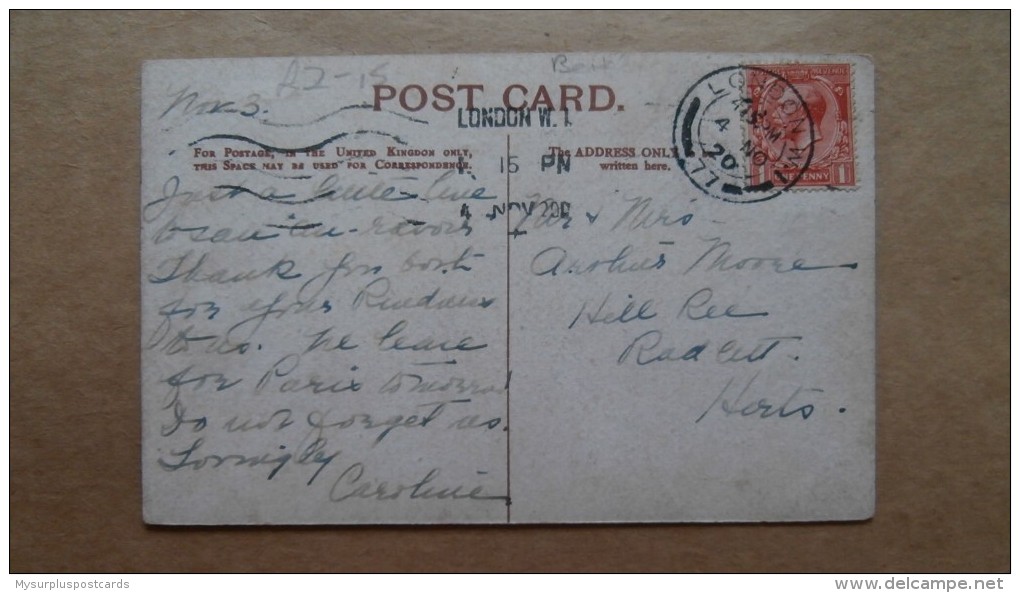 Nov. 3.
POST CARD.
LONDON W. 1.
15 PM
4 NOV 20
FOR POSTAGE, IN THE UNITED KINGDOM ONLY,
THIS SPACE MAY BE USED FOR CORRESPONDENCE.
The ADDRESS ONLY
written here.
LONDON W.1
4 NO
20
77
ONE PENNY
Just a little line
to say au-revoir
Thank you both
for your Kindness
to us. We leave
for Paris tomorrow
Do not forget us.
Lovingly
Caroline
Mr & Mrs
Moore
Hill
Radlett.
Herts.
Mysurpluspostcards
www.delcampe.net